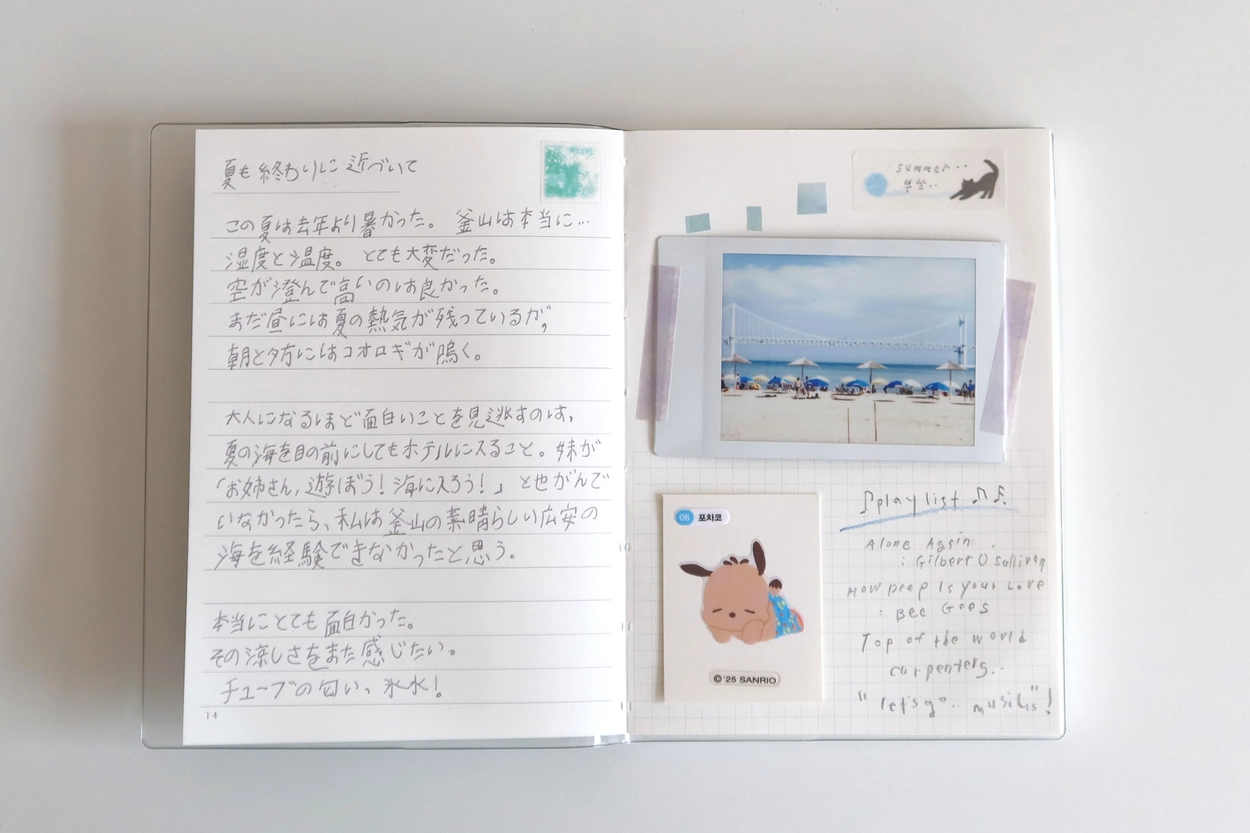 夏も終わりに近づいて
この夏は去年より暑かった。 釜山は本当に...
湿度と温度。 とても大変だった。
空が澄んで高いのは良かった。
まだ昼には夏の熱気が残っているが,
朝と夕方にはコオロギが鳴く。
大人になるほど面白いことを見逃すのは,
夏の海を目の前にしてもホテルに入ること。妹が
「お姉さん, 遊ぼう! 海に入ろう!」 とせがんで
いなかったら、私は釜山の素晴らしい広安の
海を経験できなかったと思う。
本当にとても面白かった。
その涼しさをまた感じたい。
チューブの匂い、氷水!
14
summer..
06 포차코
©'25 SANRIO
♪playlist ♫♬
Alone Again
: Gilbert O'sullivan
How Deep Is your Love
: Bee Gees
Top of the world
carpenters..
"let's go.. music"!